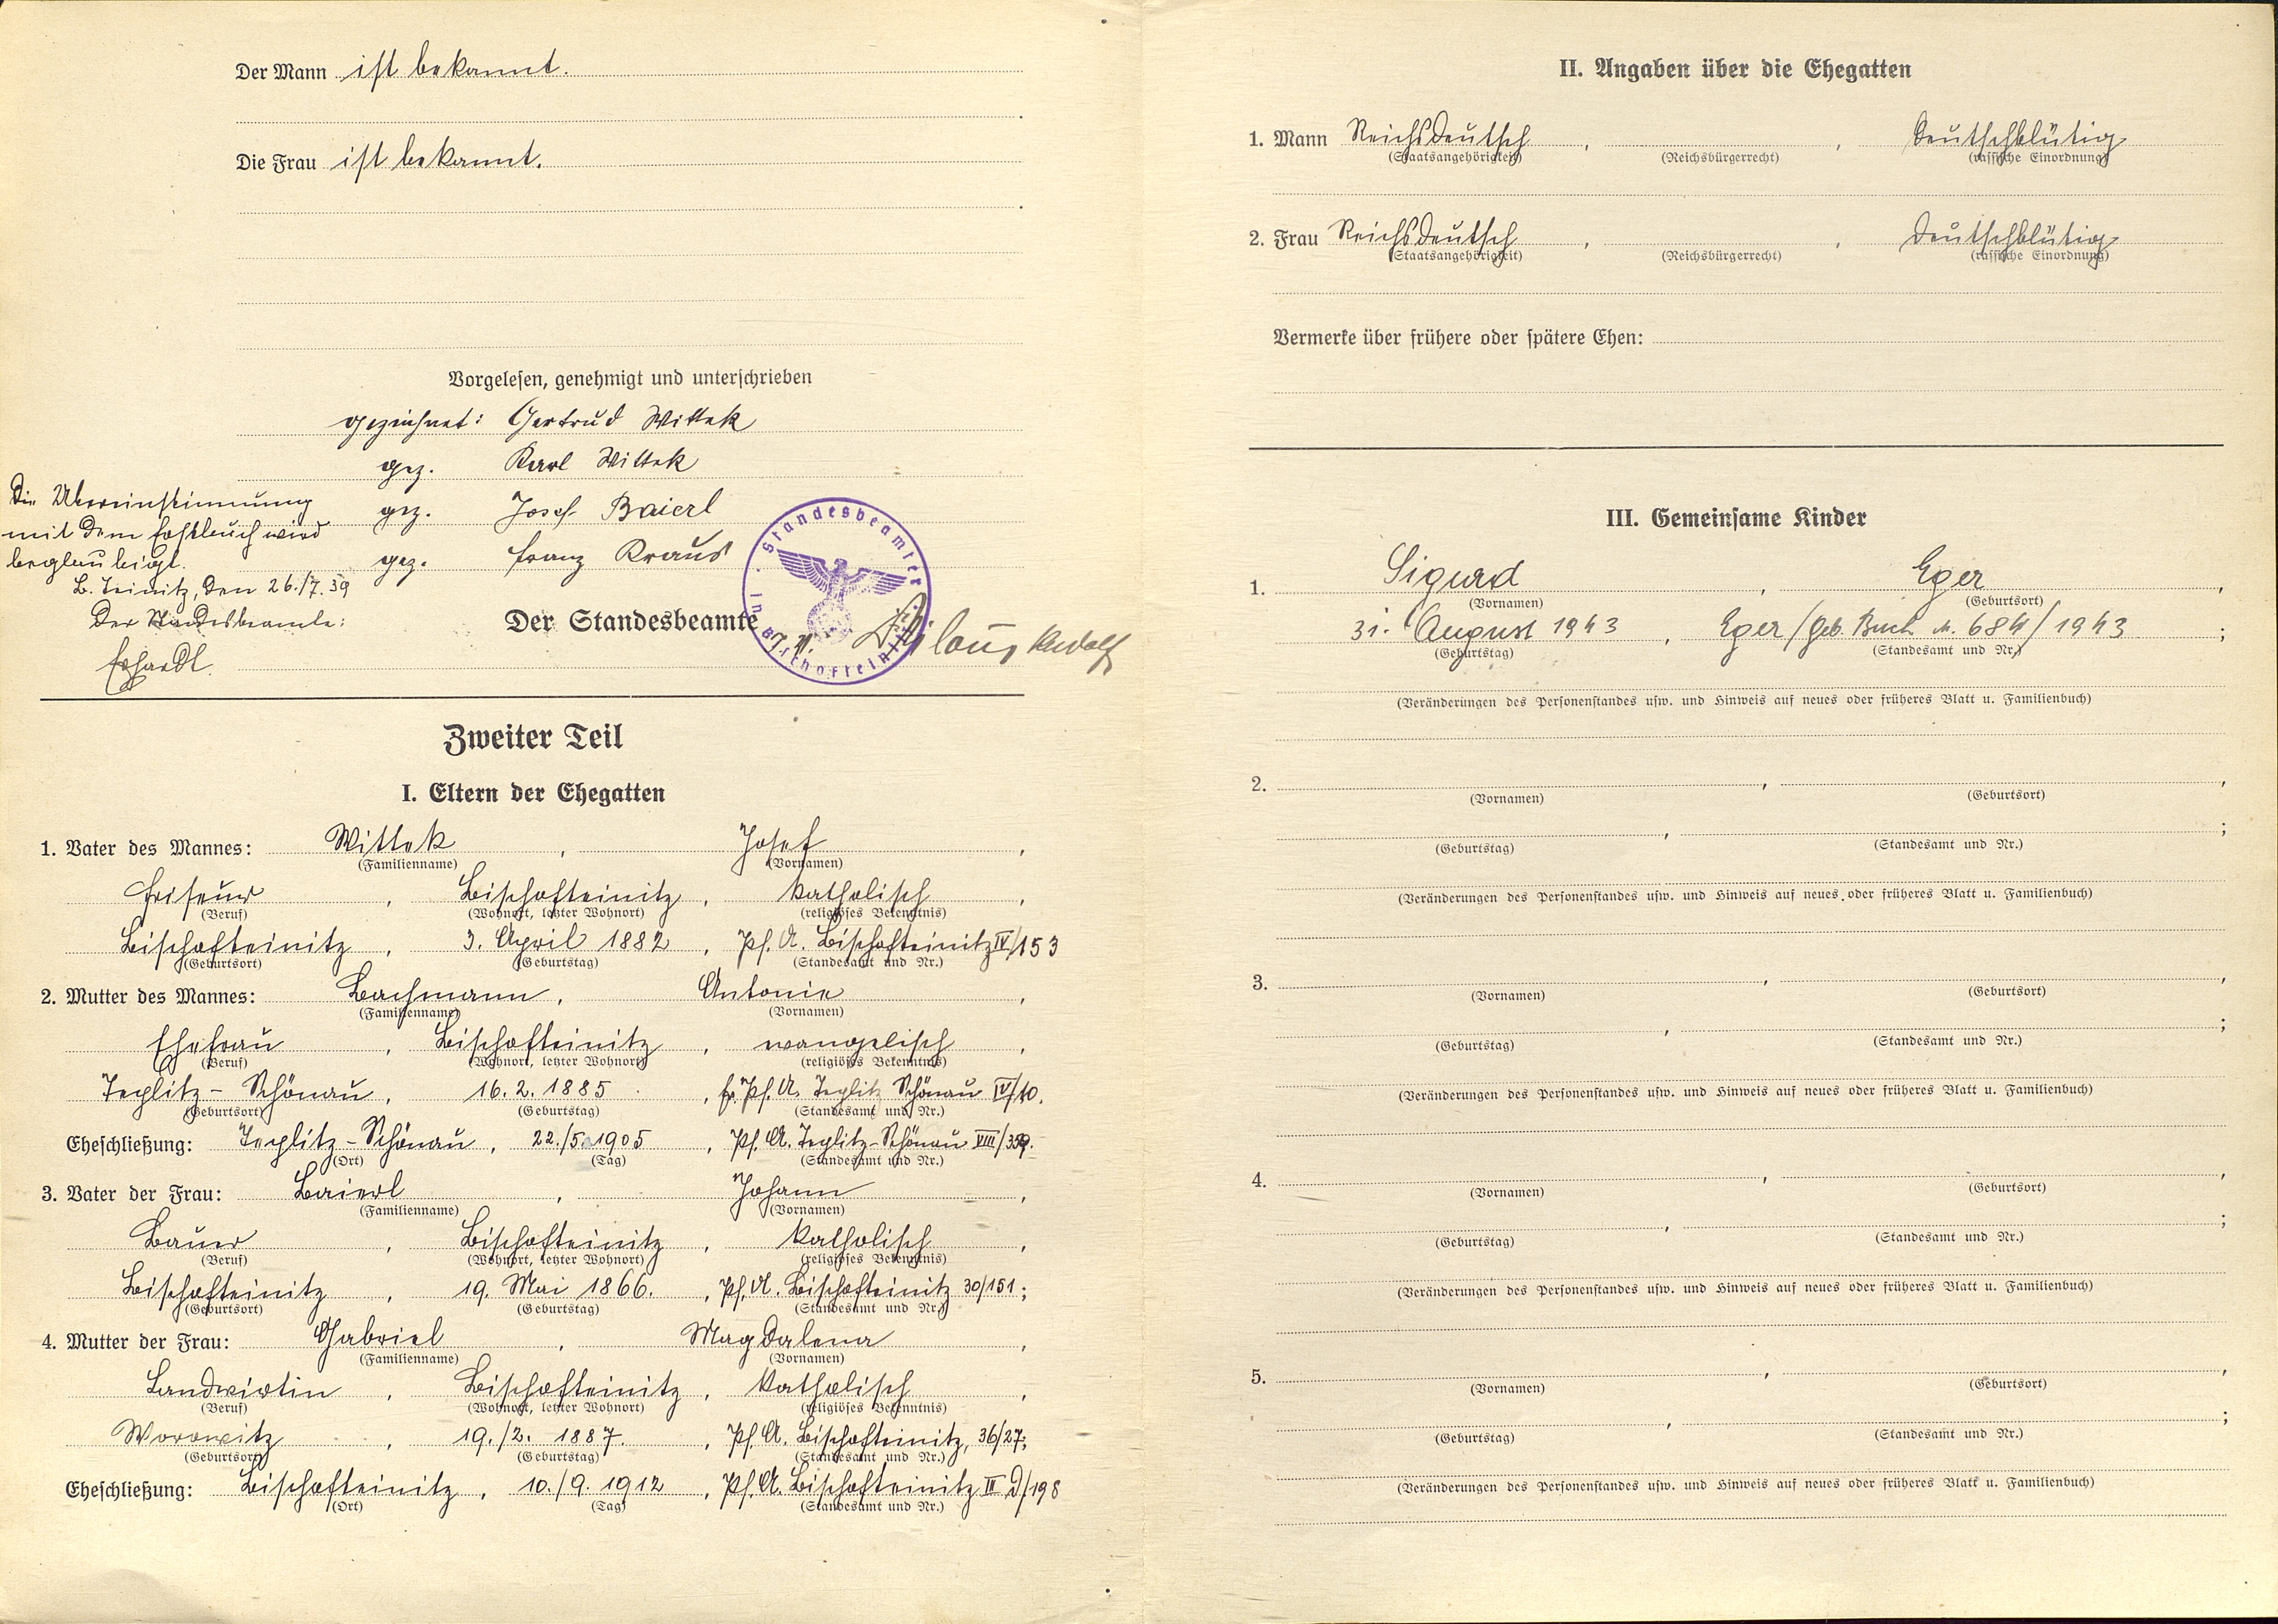 Der Mann ist bekannt.
Die Frau ist bekannt.
Vorgelesen, genehmigt und unterschrieben
gezeichnet: Gertrud Wittek
gez. Karl Wittek
gez. Josef Baierl
gez. Franz Kraus
Die Übereinstimmung
mit dem Erstbuch wird
beglaubigt.
B. Teinitz, den 26./7. 39
Der Standesbeamte:
Erhardt.
Standesbeamter in Bischofteinitz
Der Standesbeamte
J. V. Rudolf
Zweiter Teil
I. Eltern der Ehegatten
1. Vater des Mannes: Wittek, Josef,
(Familienname) (Vornamen)
Friseur, Bischofteinitz, katholisch,
(Beruf) (Wohnort, letzter Wohnort) (religiöses Bekenntnis)
Bischofteinitz, 3. April 1882, Pf. A. Bischofteinitz IV/153
(Geburtsort) (Geburtstag) (Standesamt und Nr.)
2. Mutter des Mannes: Bachmann, Antonie,
(Familienname) (Vornamen)
Ehefrau, Bischofteinitz, evangelisch,
(Beruf) (Wohnort, letzter Wohnort) (religiöses Bekenntnis)
Teplitz-Schönau, 16. 2. 1885, Pf. A. Teplitz Schönau IV/10.
(Geburtsort) (Geburtstag) (Standesamt und Nr.)
Eheschließung: Teplitz-Schönau, 22./5. 1905, Pf. A. Teplitz-Schönau VIII/359.
(Ort) (Tag) (Standesamt und Nr.)
3. Vater der Frau: Baierl, Johann,
(Familienname) (Vornamen)
Bauer, Bischofteinitz, katholisch,
(Beruf) (Wohnort, letzter Wohnort) (religiöses Bekenntnis)
Bischofteinitz, 19. Mai 1866., Pf. A. Bischofteinitz 30/151;
(Geburtsort) (Geburtstag) (Standesamt und Nr.)
4. Mutter der Frau: Gabriel, Magdalena,
(Familienname) (Vornamen)
Landwirtin, Bischofteinitz, katholisch,
(Beruf) (Wohnort, letzter Wohnort) (religiöses Bekenntnis)
Worowitz, 19./2. 1887., Pf. A. Bischofteinitz, 36/27;
(Geburtsort) (Geburtstag) (Standesamt und Nr.)
Eheschließung: Bischofteinitz, 10./9. 1912, Pf. A. Bischofteinitz III D/198
(Ort) (Tag) (Standesamt und Nr.)
II. Angaben über die Ehegatten
1. Mann Reichsdeutsch, , Deutschblütig
(Staatsangehörigkeit) (Reichsbürgerrecht) (rassische Einordnung)
2. Frau Reichsdeutsch, , Deutschblütig
(Staatsangehörigkeit) (Reichsbürgerrecht) (rassische Einordnung)
Vermerke über frühere oder spätere Ehen:
III. Gemeinsame Kinder
1. Sigurd, Eger,
(Vornamen) (Geburtsort)
31. August 1943, Eger/Geb. Buch N. 684/1943;
(Geburtstag) (Standesamt und Nr.)
(Veränderungen des Personenstandes usw. und Hinweis auf neues oder früheres Blatt u. Familienbuch)
2. , ,
(Vornamen) (Geburtsort)
, ;
(Geburtstag) (Standesamt und Nr.)
(Veränderungen des Personenstandes usw. und Hinweis auf neues oder früheres Blatt u. Familienbuch)
3. , ,
(Vornamen) (Geburtsort)
, ;
(Geburtstag) (Standesamt und Nr.)
(Veränderungen des Personenstandes usw. und Hinweis auf neues oder früheres Blatt u. Familienbuch)
4. , ,
(Vornamen) (Geburtsort)
, ;
(Geburtstag) (Standesamt und Nr.)
(Veränderungen des Personenstandes usw. und Hinweis auf neues oder früheres Blatt u. Familienbuch)
5. , ,
(Vornamen) (Geburtsort)
, ;
(Geburtstag) (Standesamt und Nr.)
(Veränderungen des Personenstandes usw. und Hinweis auf neues oder früheres Blatt u. Familienbuch)